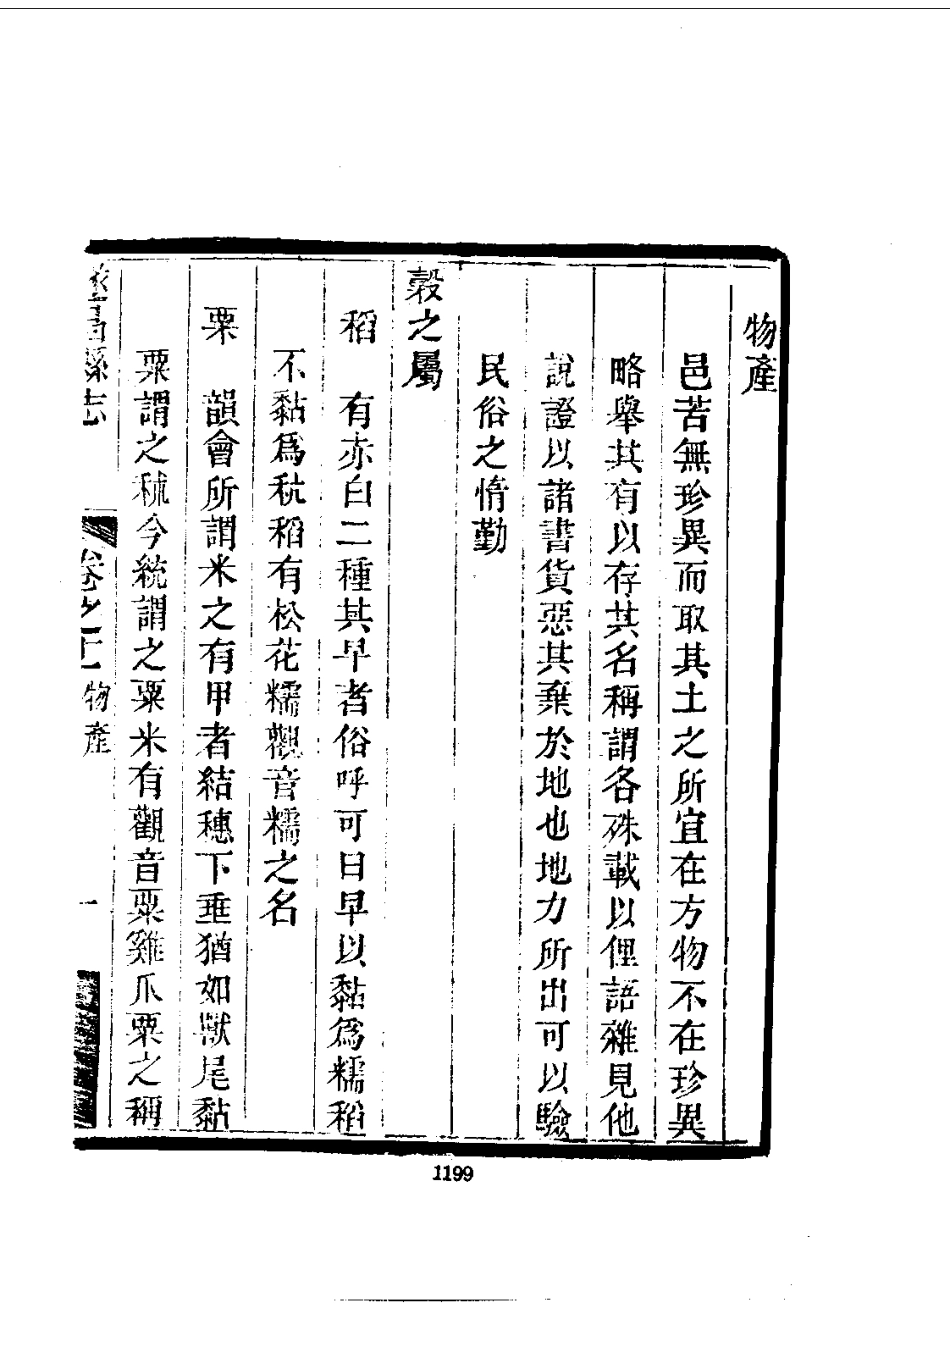 物產
邑苦無珍異而取其土之所宜在方物不在珍異
略舉其有以存其名稱謂各殊載以俚語雜見他
說證以諸書貨惡其棄於地也地力所出可以驗
民俗之惰勤
穀之屬
稻　有赤白二種其早者俗呼可日早以黏爲糯稻
不黏爲秔稻有松花糯觀音糯之名
粟　韻會所謂米之有甲者結穗下垂猶如獸尾黏
粟謂之秫今統謂之粟米有觀音粟雞爪粟之稱
遂昌縣志
卷之十一 物產
一
1199